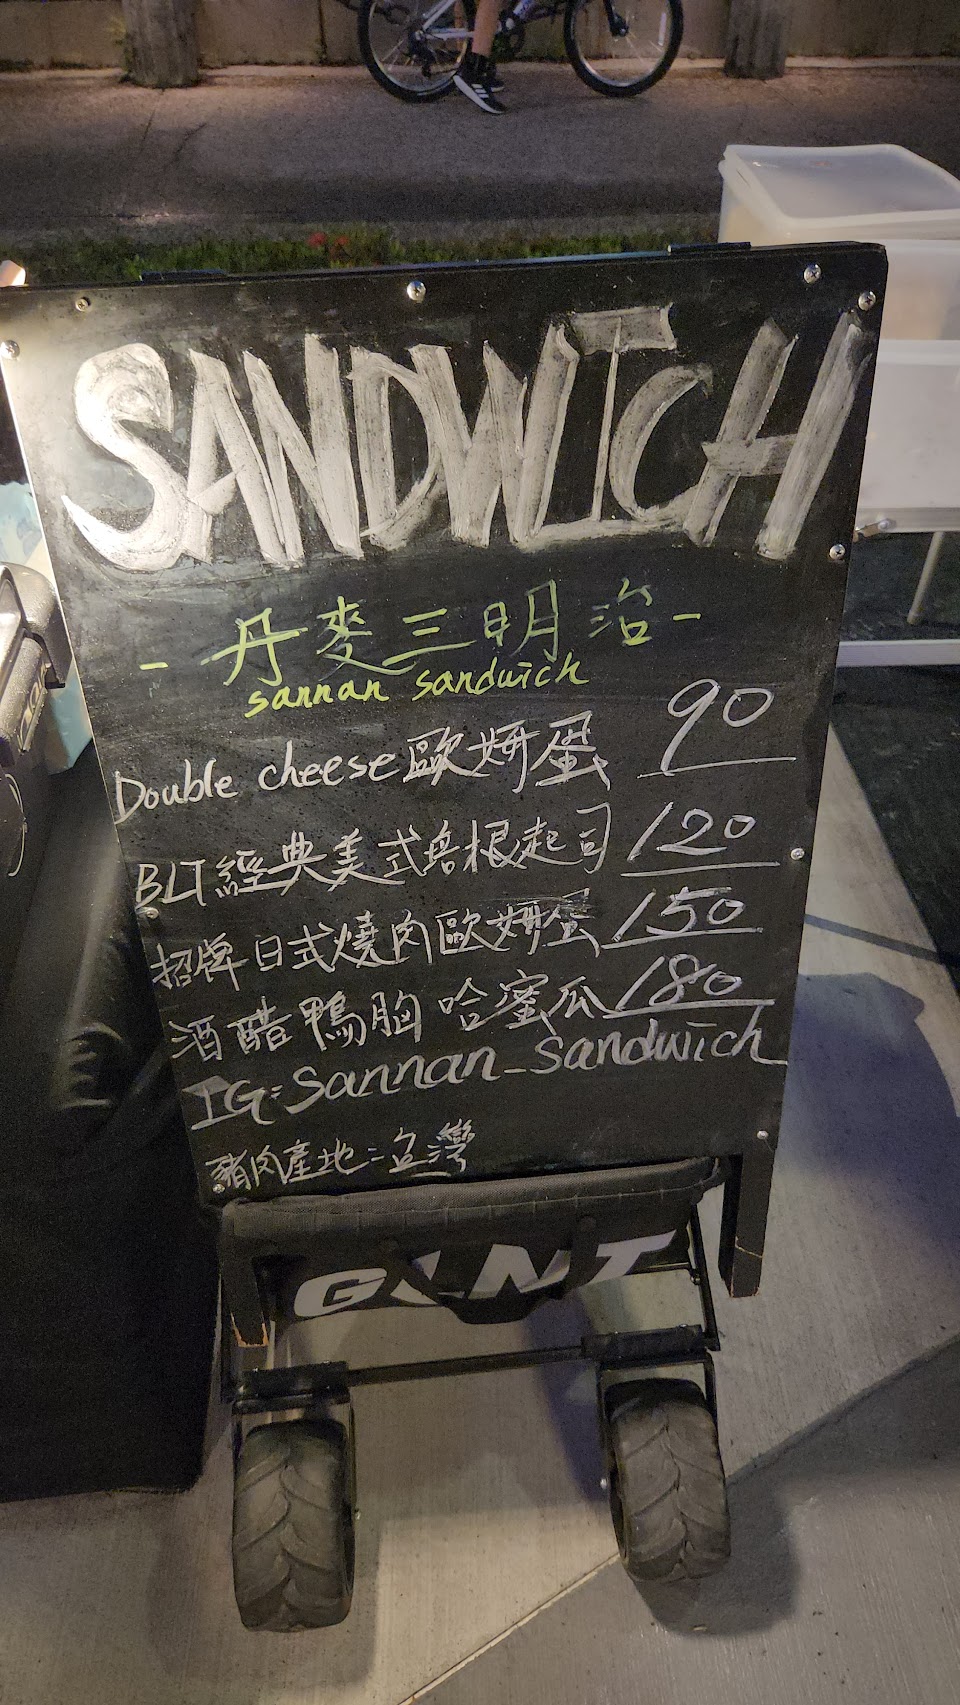 SANDWICH
- 丹麥三明治 -
sannan sandwich
Double cheese 歐姆蛋 90
BLT經典美式培根起司 120
招牌日式燒肉歐姆蛋 150
酒醋鴨胸哈蜜瓜 180
IG:Sannan_sandwich
豬肉產地:台灣
GINT